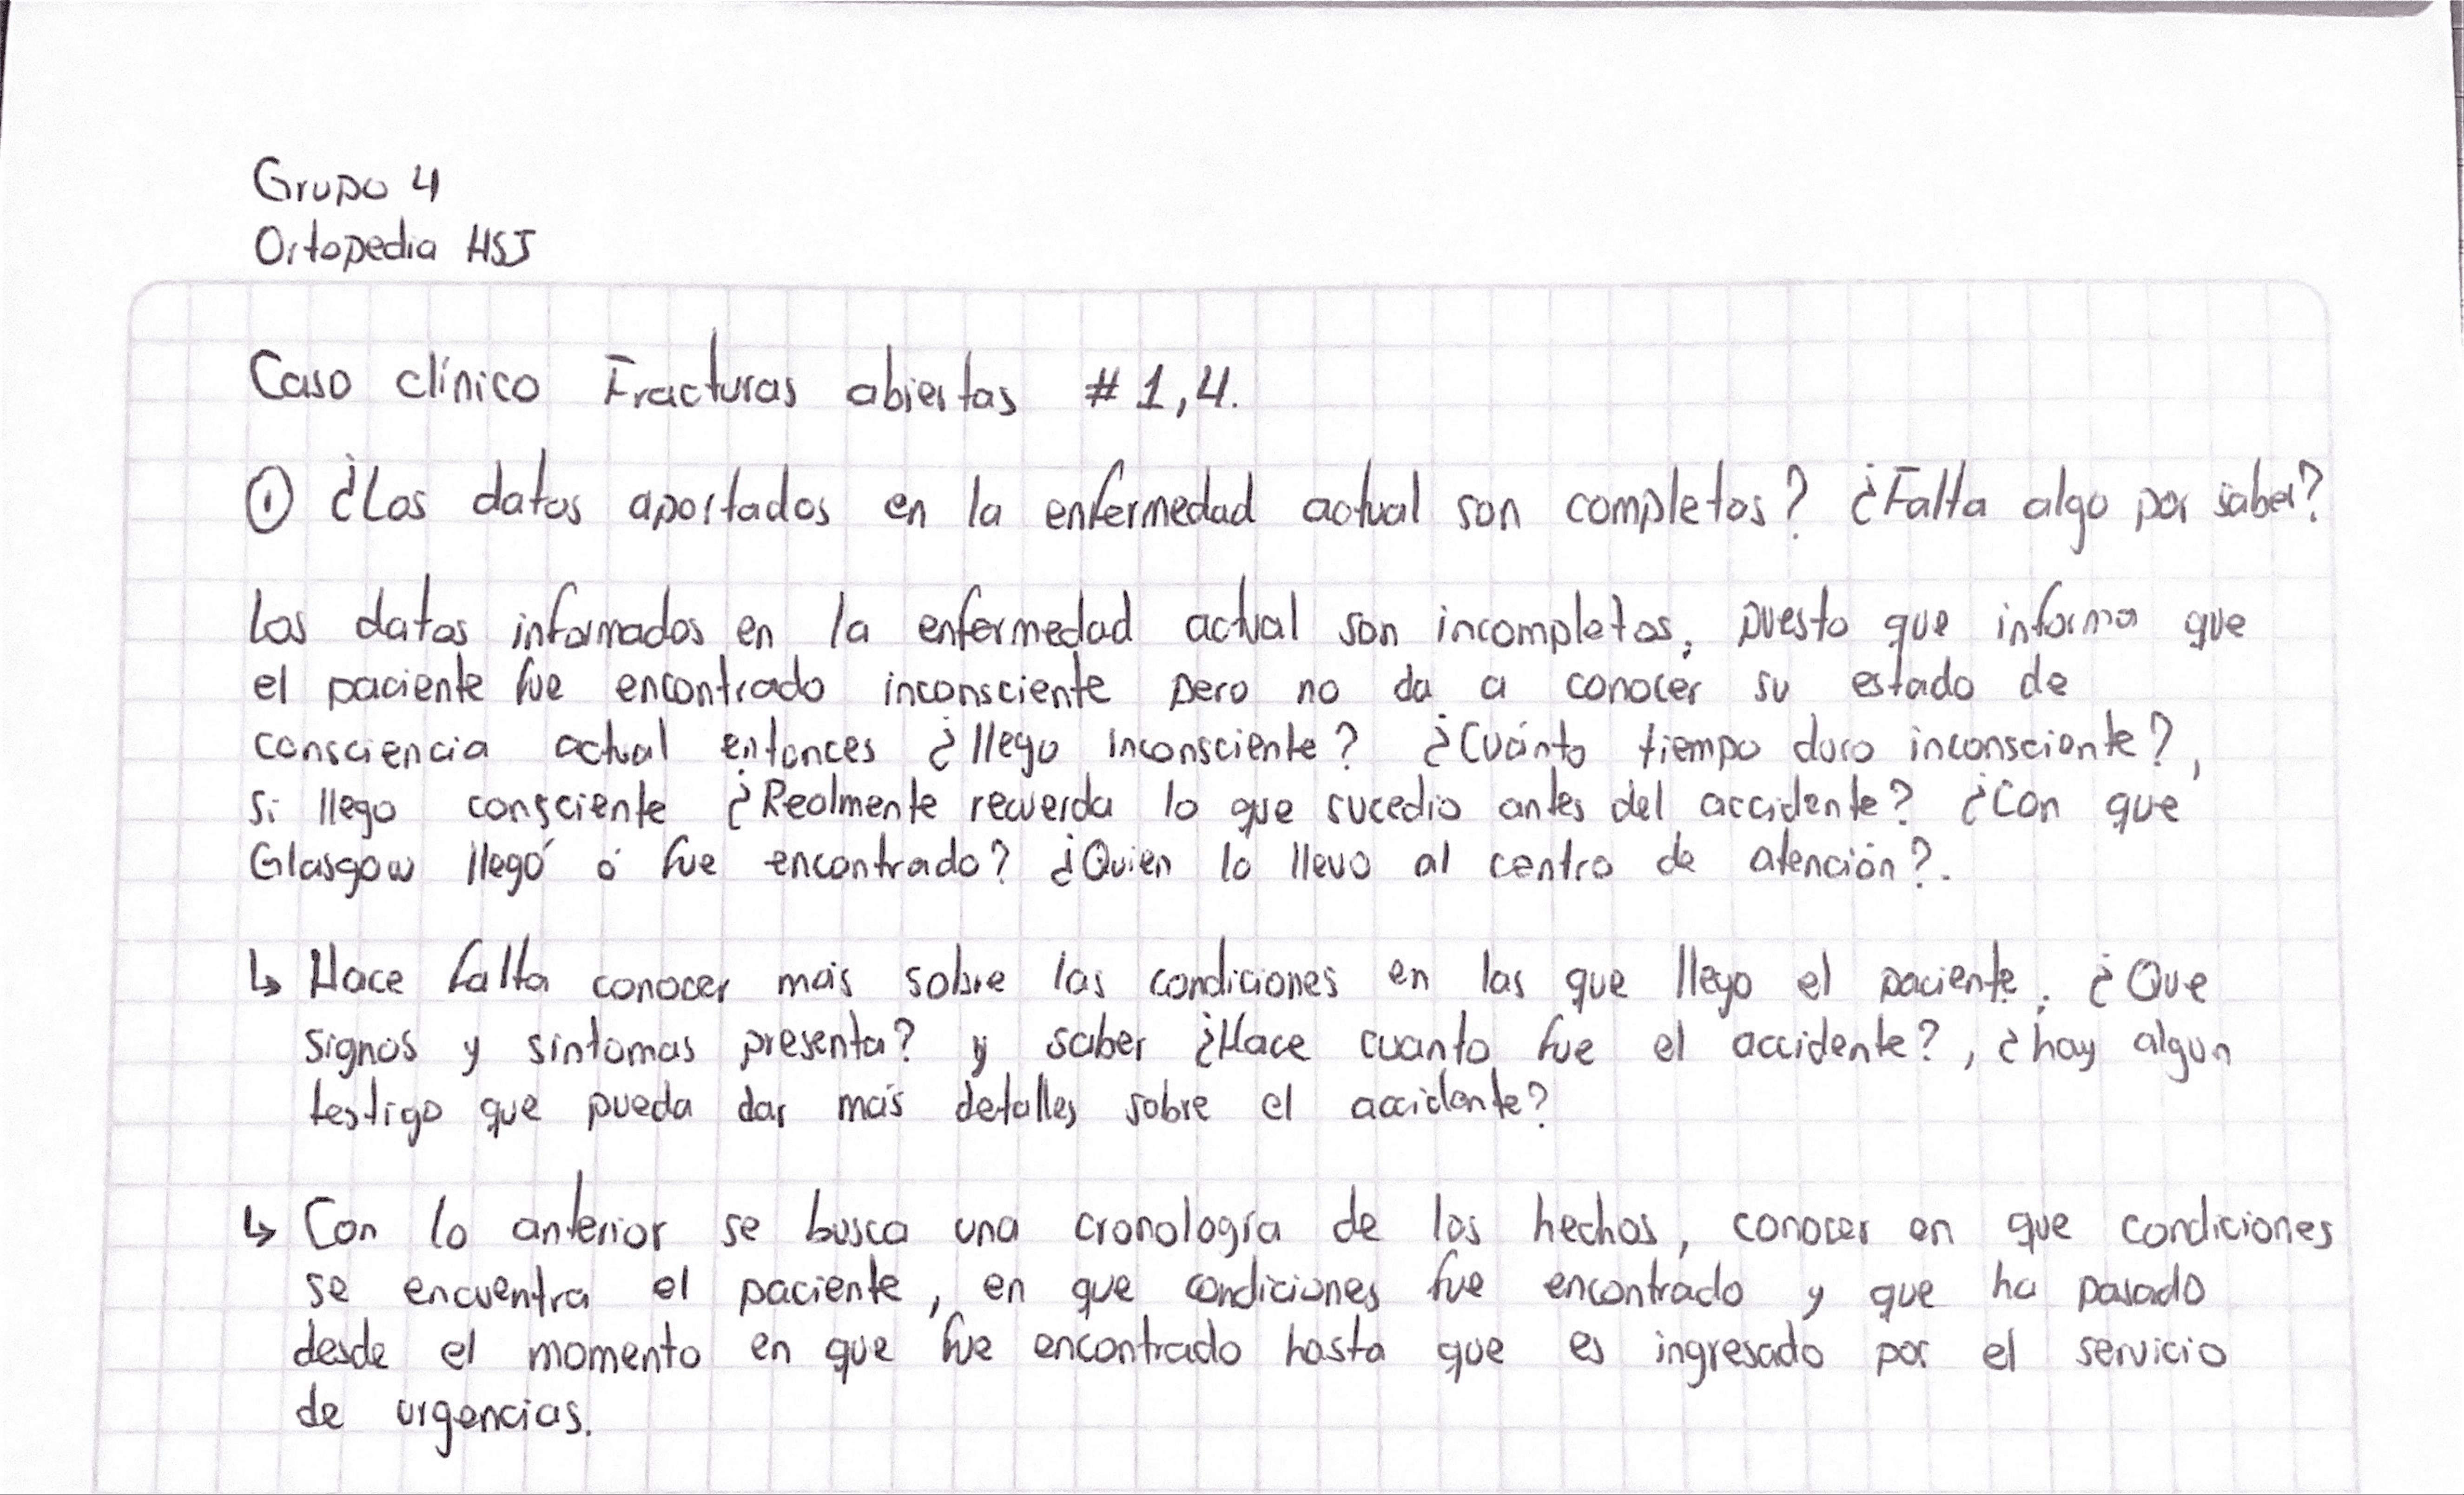 Grupo 4
Ortopedia HSJ
Caso clínico Fracturas abiertas # 1,4.
① ¿Los datos aportados en la enfermedad actual son completos? ¿Falta algo por saber?
Los datos informados en la enfermedad actual son incompletos, puesto que informa que
el paciente fue encontrado inconsciente pero no da a conocer su estado de
consciencia actual entonces ¿llego inconsciente? ¿Cuánto tiempo duro inconsciente?,
si llego consciente ¿Realmente recuerda lo que sucedio antes del accidente? ¿Con que
Glasgow llegó ó fue encontrado? ¿Quien lo llevo al centro de atención?.
↳ Hace falta conocer más sobre las condiciones en las que llego el paciente. ¿Que
signos y sintomas presenta? y saber ¿Hace cuanto fue el accidente?, ¿hay algun
testigo que pueda dar más detalles sobre el accidente?
↳ Con lo anterior se busca una cronología de los hechos, conocer en que condiciones
se encuentra el paciente, en que condiciones fue encontrado y que ha pasado
desde el momento en que fue encontrado hasta que es ingresado por el servicio
de urgencias.